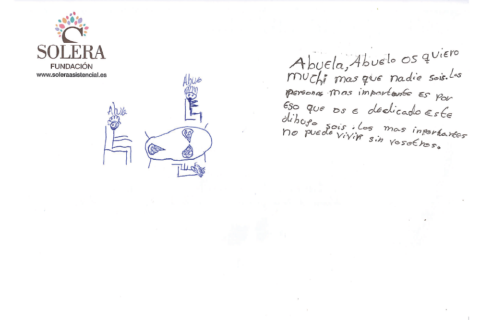 SOLERA
FUNDACIÓN
www.soleraasistencial.es
Abuelo
Abuela
Abuela, Abuelo os quiero
muchi mas que nadie sois. las
personas mas importante es por
eso que os e dedicado este
dibujo sois. los mas importantes
no puedo vivir sin vosotros.